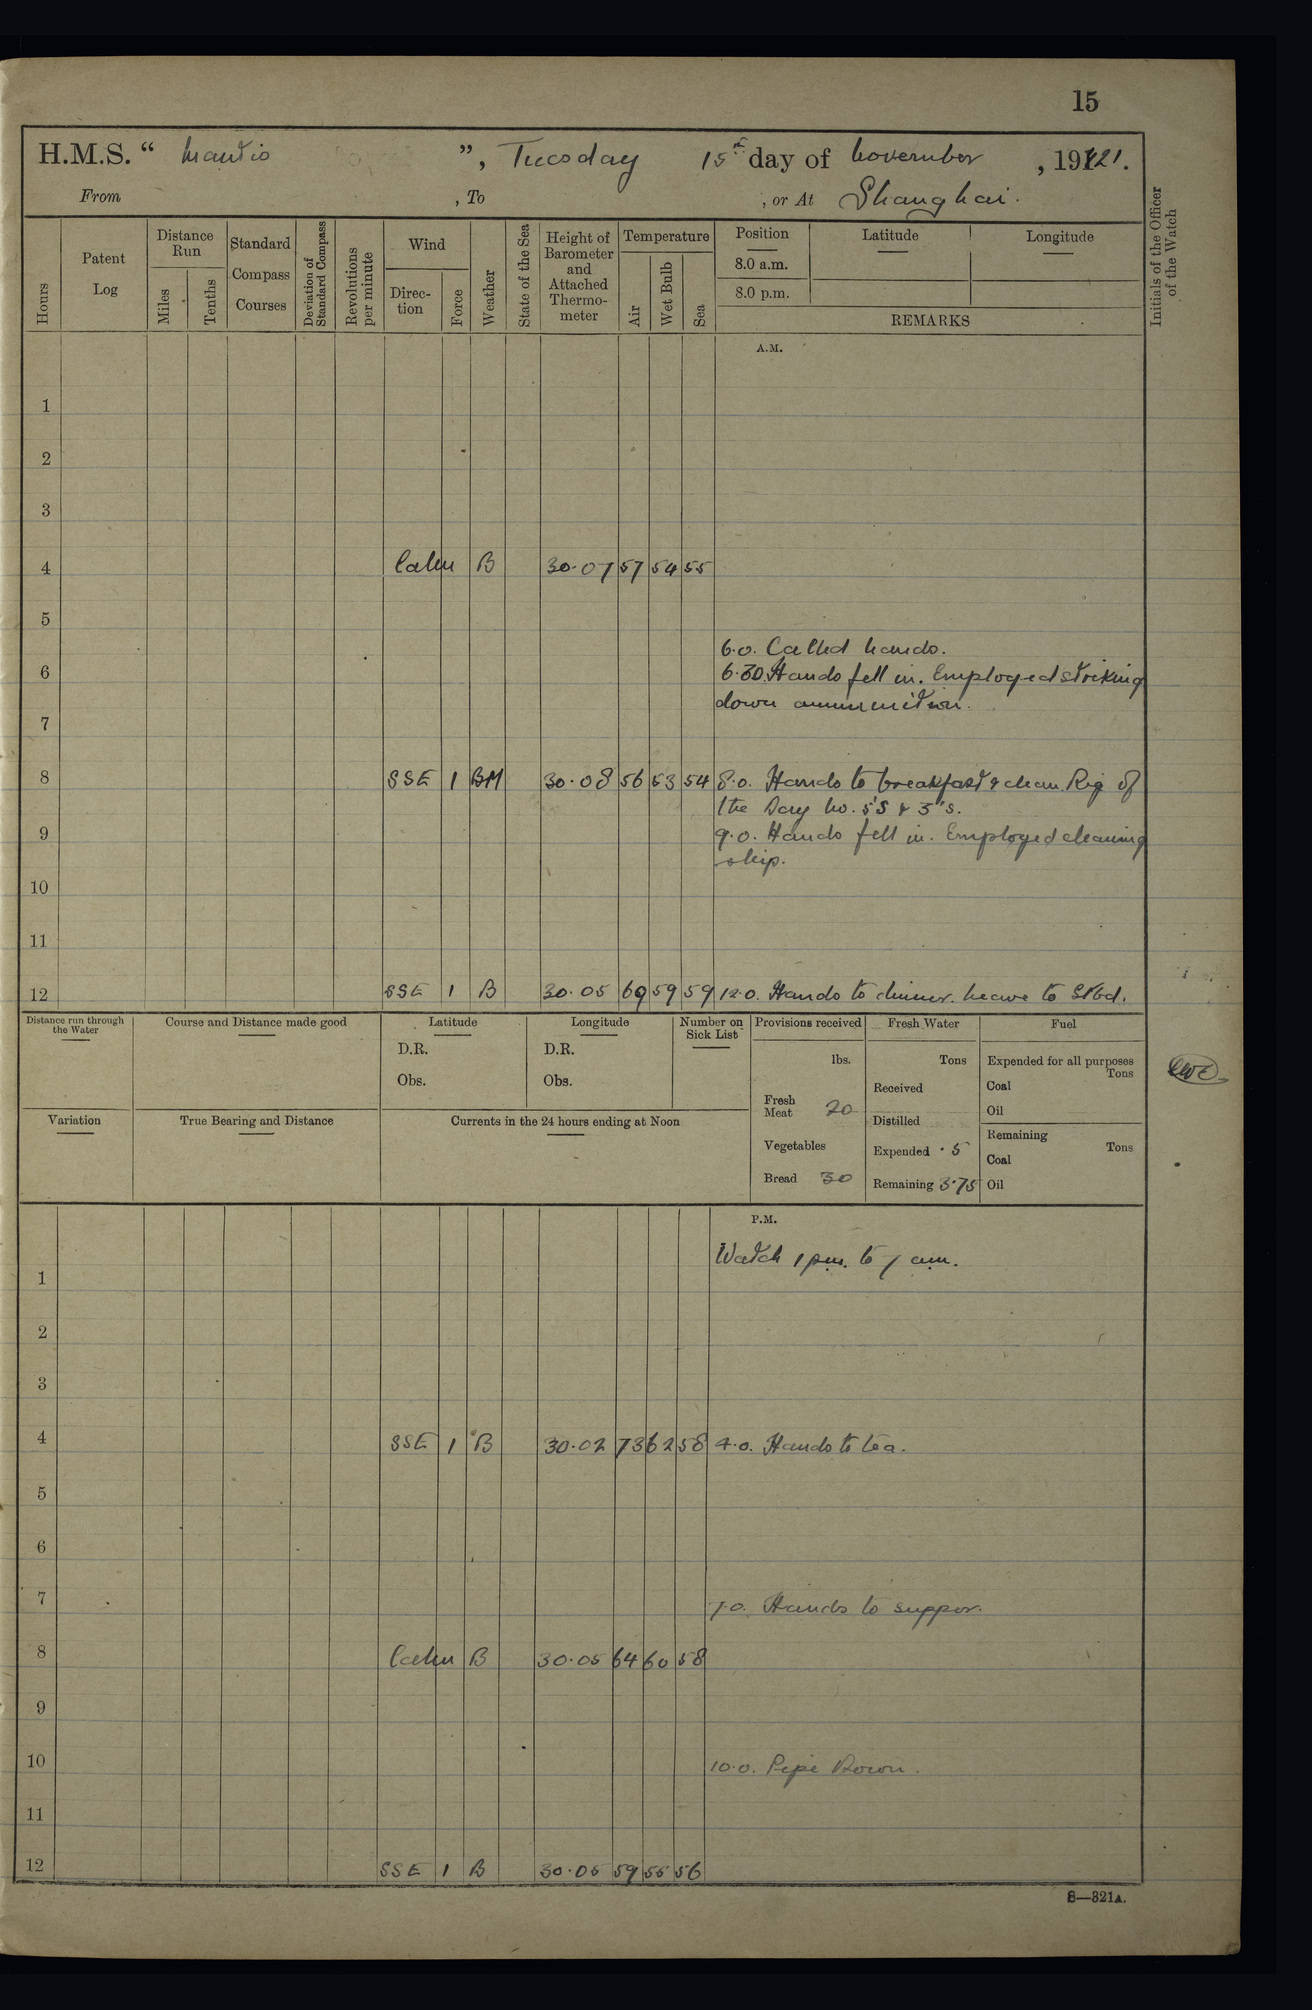 15
H.M.S. “ Mantis ”, Tuesday 15th day of November , 1921.
From , To , or At Shanghai.
Hours
Patent Log
Distance Run
Miles
Tenths
Standard Compass Courses
Deviation of Standard Compass
Revolutions per minute
Wind
Direction
Force
Weather
State of the Sea
Height of Barometer and Attached Thermometer
Temperature
Air
Wet Bulb
Sea
Position
8.0 a.m.
8.0 p.m.
Latitude
Longitude
REMARKS
Initials of the Officer of the Watch
A.M.
1
2
3
4 Calm B 30.07 57 54 55
5
6.0. Called hands.
6 6.30. Hands fell in. Employed striking
down ammunition.
7
8 SSE 1 BM 30.08 56 53 54 8.0. Hands to breakfast & clean. Rig of
the Day No. 5's & 3's.
9 9.0. Hands fell in. Employed cleaning
ship.
10
11
12 SSE 1 B 30.05 69 59 59 12.0. Hands to dinner. Leave to Stbd.
Distance run through the Water
Course and Distance made good
Latitude
D.R.
Obs.
Longitude
D.R.
Obs.
Number on Sick List
Provisions received
lbs.
Fresh Meat 20
Vegetables
Bread 30
Fresh Water
Tons
Received
Distilled
Expended .5
Remaining 3.75
Fuel
Expended for all purposes
Tons
Coal
Oil
Remaining
Tons
Coal
Oil
Variation
True Bearing and Distance
Currents in the 24 hours ending at Noon
P.M.
Watch 1 pm. to 7 am.
1
2
3
4 SSE 1 B 30.02 73 62 58 4.0. Hands to tea.
5
6
7 7.0. Hands to supper.
8 Calm B 30.05 64 60 58
9
10 10.0. Pipe Down.
11
12 SSE 1 B 30.05 59 55 56
S—321A.